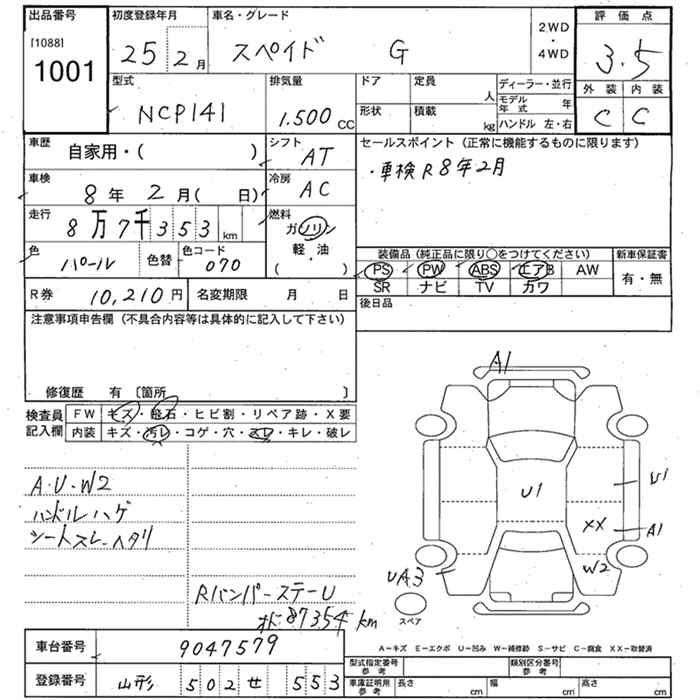 出品番号 初度登録年月 車名・グレード 評価点
[1088] 1001 25年2月 スペイド G 2WD・4WD 3.5
型式 排気量 ドア 定員 人 ディーラー・並行 外装 内装
NCP141 1.500cc 形状 積載 kg モデル年式 年 ハンドル 左・右 C C
車歴 自家用・( ) シフト AT セールスポイント (正常に機能するものに限ります)
車検 8年2月(日) 冷房 AC ・車検R8年2月
走行 8万7千353km 燃料 ガソリン・軽・油( )
色 パール 色替 色コード 070 装備品(純正品に限り○をつけてください) 新車保証書
PS PW ABS エアB AW 有・無
SR ナビ TV カワ
R券 10,210円 名変期限 月 日 後日品
注意事項申告欄(不具合内容等は具体的に記入して下さい)
修復歴 有 〔箇所 〕
検査員記入欄 FW キズ・飛石・ヒビ割・リペア跡・X要
内装 キズ・汚レ・コゲ・穴・スレ・キレ・破レ
A・U・W2
ハンドルハゲ
シートスレ・ヘタリ
Rバンパーステー U
87354km
A1
U1
U1
XX A1
UA3 W2
スペア
車台番号 9047579
A－キズ E－エクボ U－凹み W－補修跡 S－サビ C－腐食 XX－取替済
型式指定番号 参考 類別区分番号 参考
登録番号 山形 502 せ 553
車庫証明用参考 長さ cm 幅 cm 高さ cm